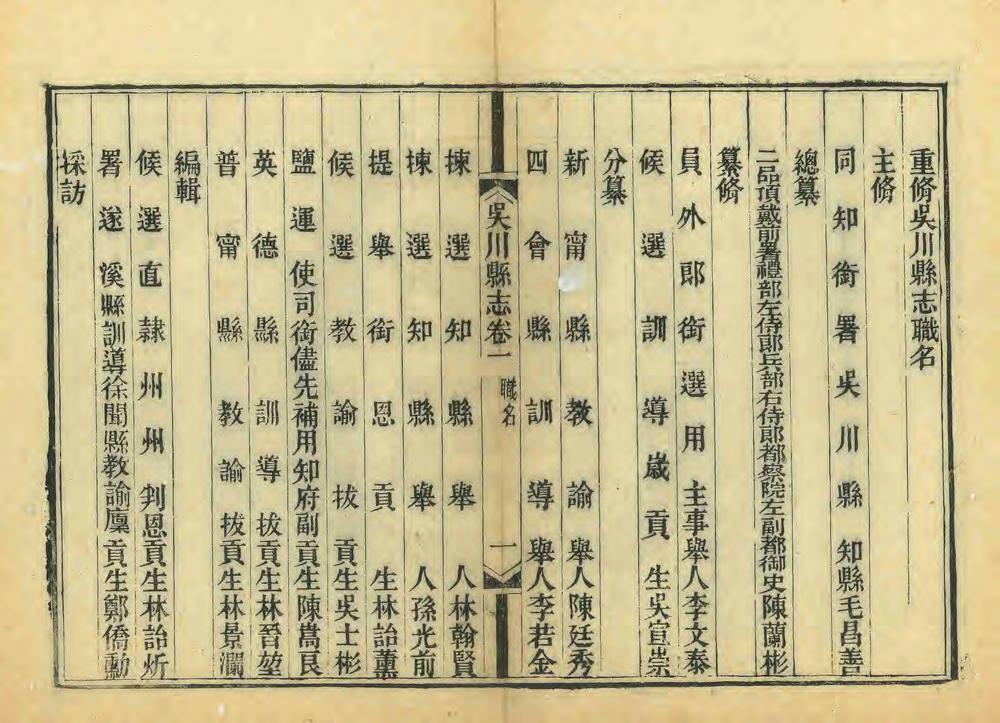 重脩吳川縣志職名
主脩
同知銜署吳川縣知縣毛昌善
總纂
二品頂戴前署禮部左侍郎兵部右侍郎都察院左副都御史陳蘭彬
纂脩
員外郎銜選用主事舉人李文泰
候選訓導歲貢生吳宣崇
分纂
新甯縣教諭舉人陳廷秀
四會縣訓導舉人李若金
吳川縣志卷一 職名 一
揀選知縣舉人林翰賢
揀選知縣舉人孫光前
提舉銜恩貢生林詒薰
候選教諭拔貢生吳士彬
鹽運使司銜儘先補用知府副貢生陳嵩良
英德縣訓導拔貢生林晉堃
普甯縣教諭拔貢生林景瀾
編輯
候選直隸州州判恩貢生林詒炘
署遂溪縣訓導徐聞縣教諭廩貢生鄭僑勳
採訪